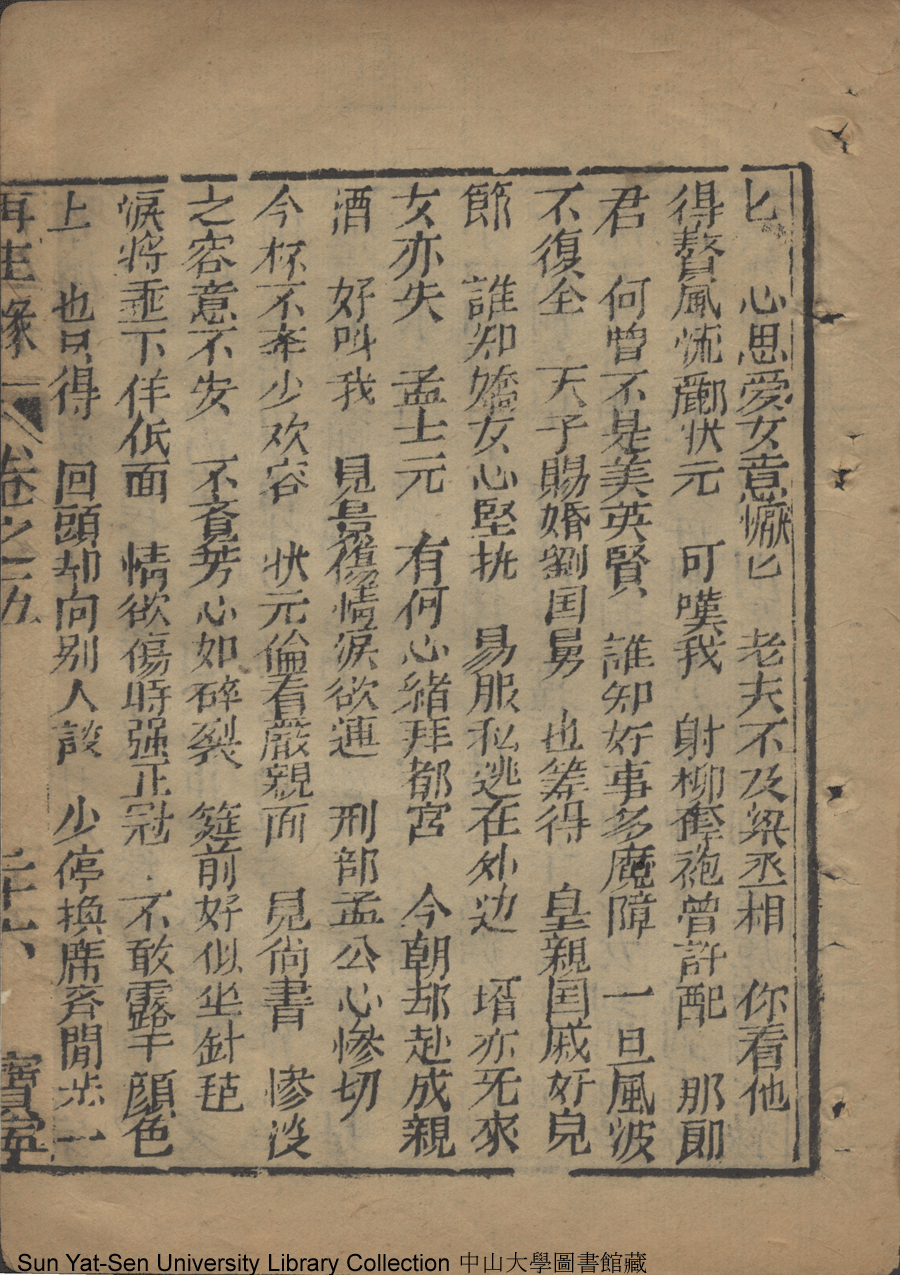 匕 心思爱女意懨匕 老夫不及梁丞相 你看他
得贅風流酈状元 可嘆我 射柳奪袍曾許配 那郎
君 何曾不是美英賢 誰知好事多魔障 一旦風波
不復全 天子賜婚劉国舅 也筭得 皇親国戚好皃
節 誰知嬌女心堅抗 易服私逃在外边 壻亦死來
女亦失 孟士元 有何心緒拜都宮 今朝却赴成親
酒 好呌我 見景傷情淚欲連 刑部孟公心惨切
今杯不牽少欢容 状元偷看嚴親面 見尚書 惨没
之容意不安 不覔芳心如碎裂 筵前好似坐針毡
淚將垂下佯低面 情欲傷時强正冠 不敢露干顔色
上 也只得 回頭却向别人談 少停換席斉閒步 一
再生緣 卷之五 二十六 寳寕
Sun Yat-Sen University Library Collection 中山大學圖書館藏